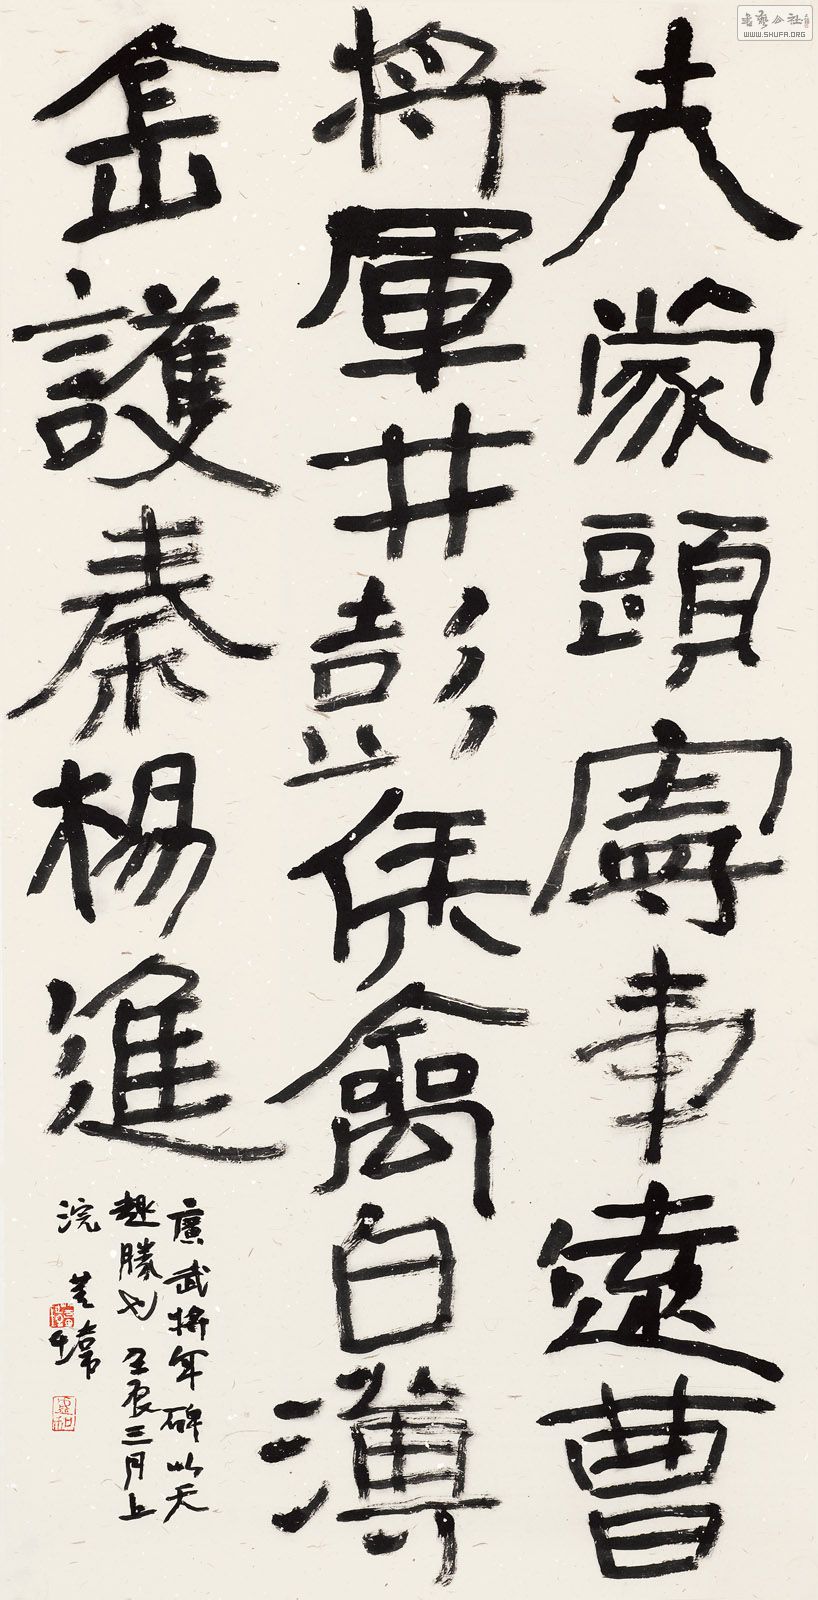 夫蒙頭寧事遠曹
將軍井彭侯禽白薄
護秦楊進
廣武將軍碑以天
趣勝也 壬辰三月上
浣
書藝公社
WWW.SHUFA.ORG